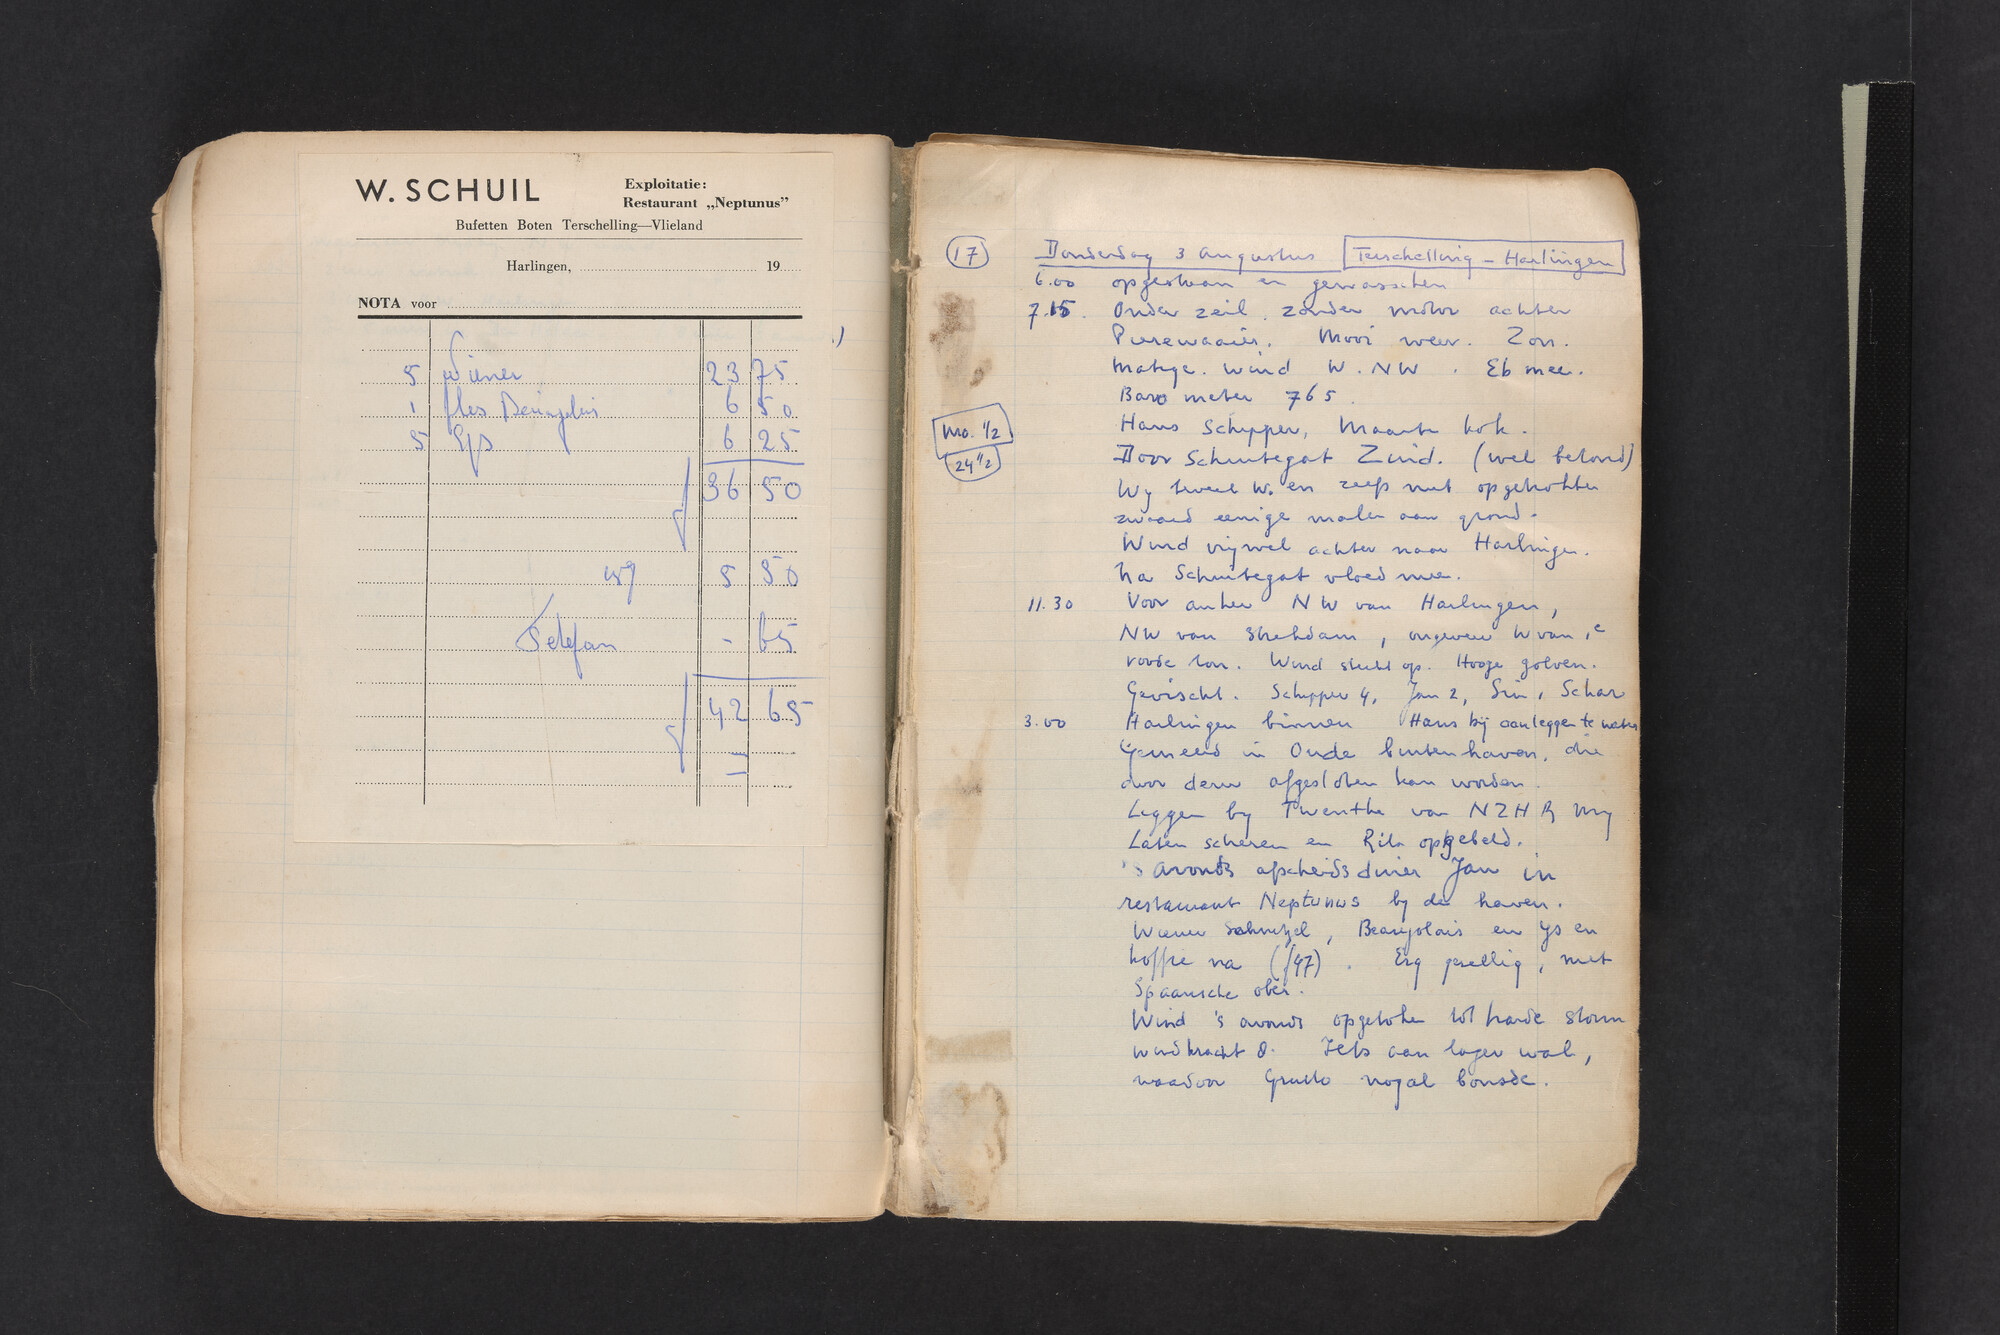 W. SCHUIL
Exploitatie:
Restaurant „Neptunus”
Bufetten Boten Terschelling—Vlieland
Harlingen, 19
NOTA voor
5 Wiener 23 75
1 fles Beaujolais 6 50
5 Ijs 6 25
f 36 50
5 50
Telefon - 65
f 42 65
17
Donderdag 3 Augustus Terschelling - Harlingen
6.00 opgestaan en gewasschen
7.15. Onder zeil, zonder motor achter
Pierewaaier. Mooi weer. Zon.
Matige wind W.NW. Eb mee.
Barometer 765.
Mo. 1/2
24 1/2
Hans Schipper, Maarten kok.
Door Schuitegat Zuid. (wel betond)
Wy en zelfs met opgetrokken
zwaard eenige malen aan grond.
Wind vrijwel achter naar Harlingen.
Na Schuitegat vloed mee.
11.30 Voor anker NW van Harlingen,
NW van Strekdam, ongeveer W van 1e
roode ton. Wind steekt op. Hooge golven.
Gevischt. Schipper 4, Jan 2, 1 Schar
3.00 Harlingen binnen Hans bij aanleggen te water
Gemeerd in Oude buitenhaven, die
door deur afgesloten kan worden.
Liggen by Twenthe van NZHR My
Laten scheren en Rita opgebeld.
's Avonds afscheidsdiner Jan in
restaurant Neptunus by de haven.
Wiener Schnitzel, Beaujolais en ijs en
koffie na (f47). Erg gezellig, met
Spaansche ober.
Wind 's avonds opgestoken tot harde storm
windkracht 8. Iets aan lager wal,
waardoor Grutto nogal bonsde.